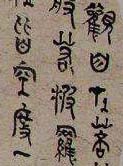 觀自在菩
般若波羅
皆空度一